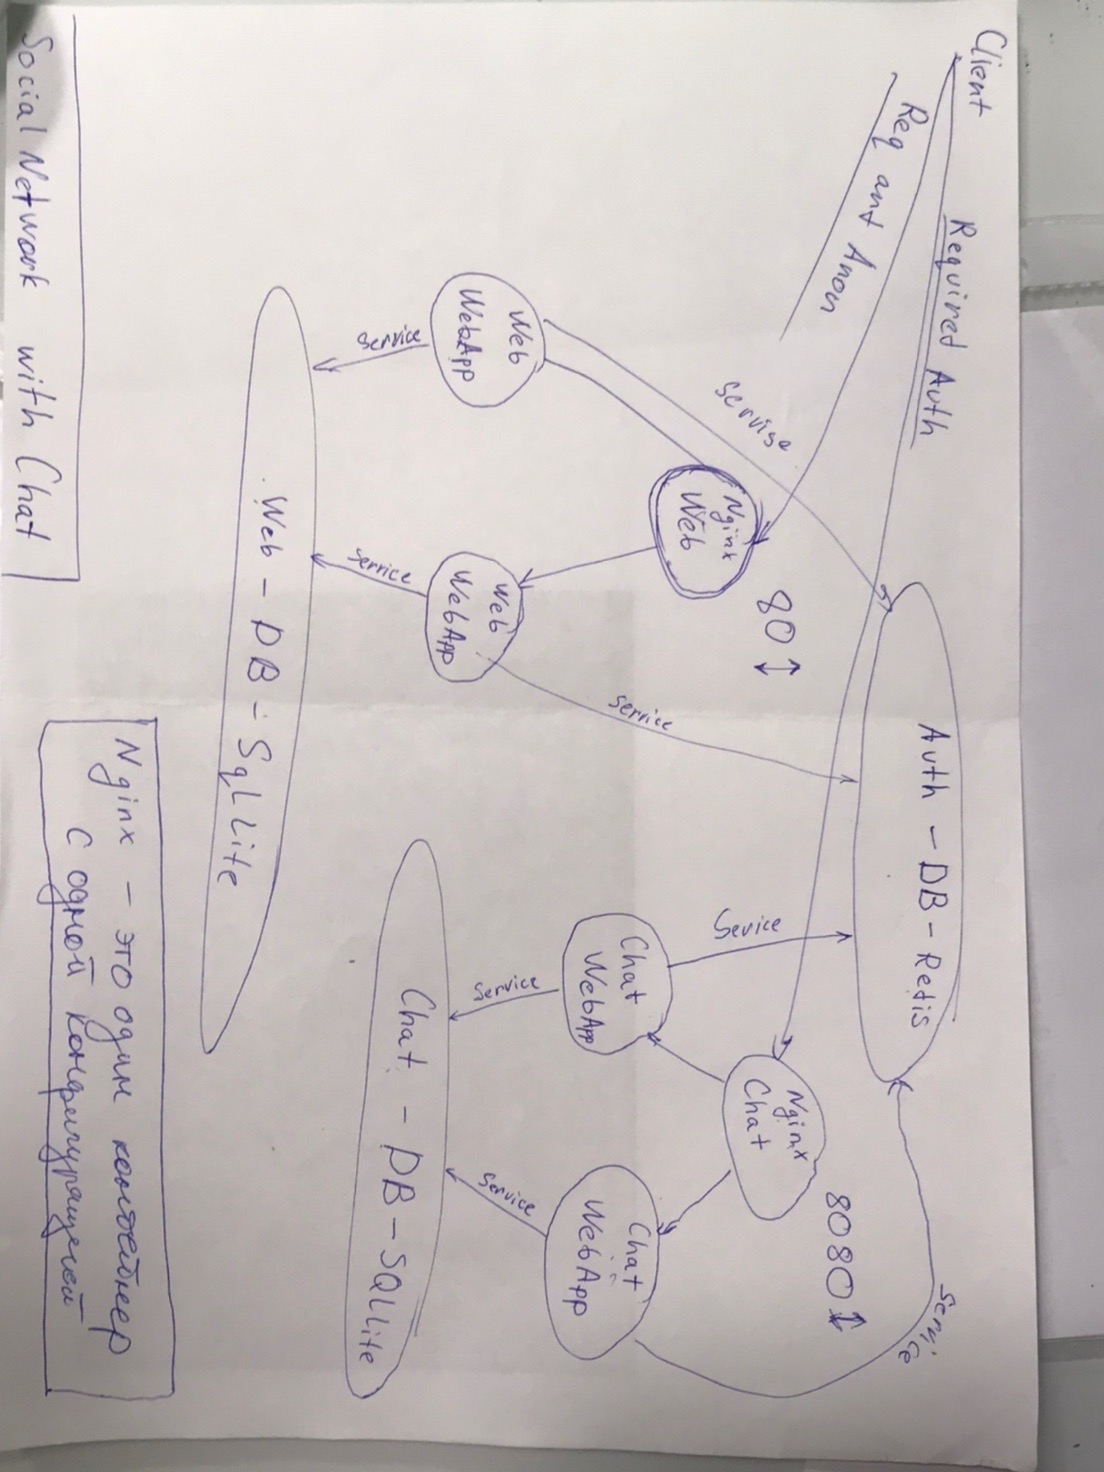 Client
Required Auth
Req and Anon
Auth - DB - Redis
Service
8080
Nginx
Chat
80
Nginx
Web
Servise
Service
Service
Chat
WebApp
Chat
WebApp
Web
WebApp
Web
WebApp
Service
Service
Service
Service
Chat - DB - SQLLite
Web - DB - SqLLite
Nginx - это один контейнер
с одной конфигурацией
Social Network with Chat